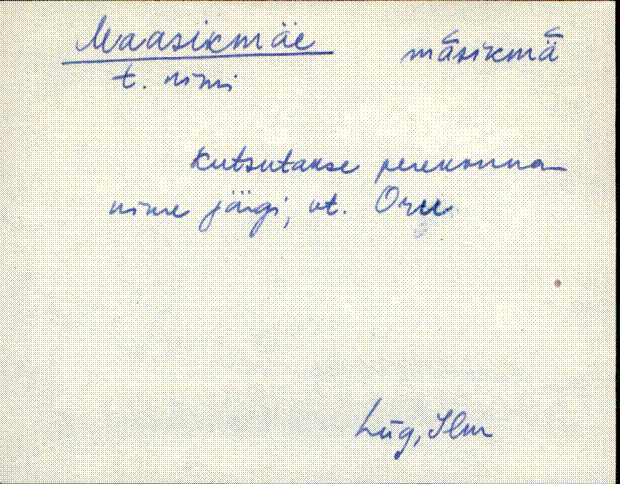 Maasikmäe mäsikmä
t. nimi
Kutsutakse perekonna-
nime järgi, vt. Oru
Lüg, Ilm